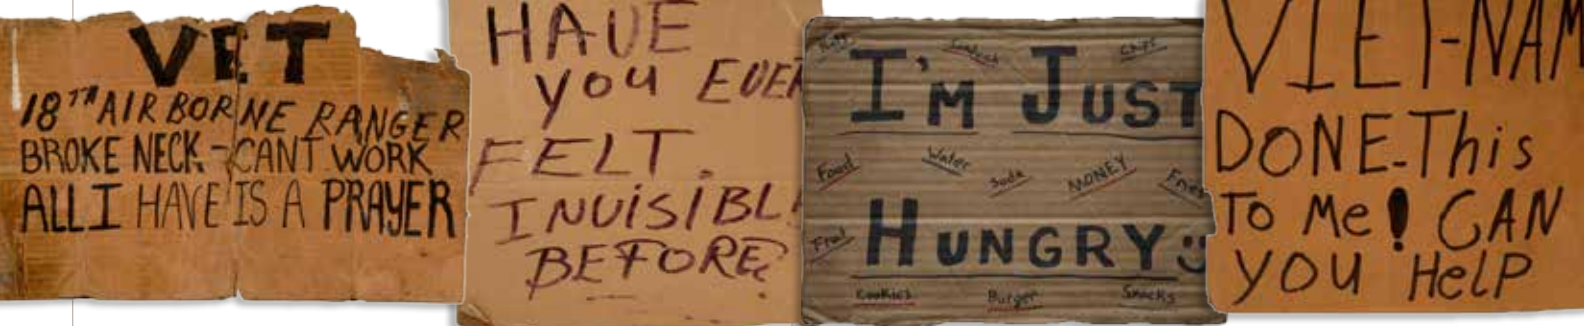 VET
18TH AIRBORNE RANGER
BROKE NECK - CANT WORK
ALL I HAVE IS A PRAYER
HAVE
YOU EVER
FELT.
INVISIBL
BEFORE?
Sandwich Chips
I'M JUST
Food Water Soda MONEY Fries
Fruit
HUNGRY
Cookies Burger Snacks
VIET-NAM
DONE-This
To Me! CAN
YOU HELP